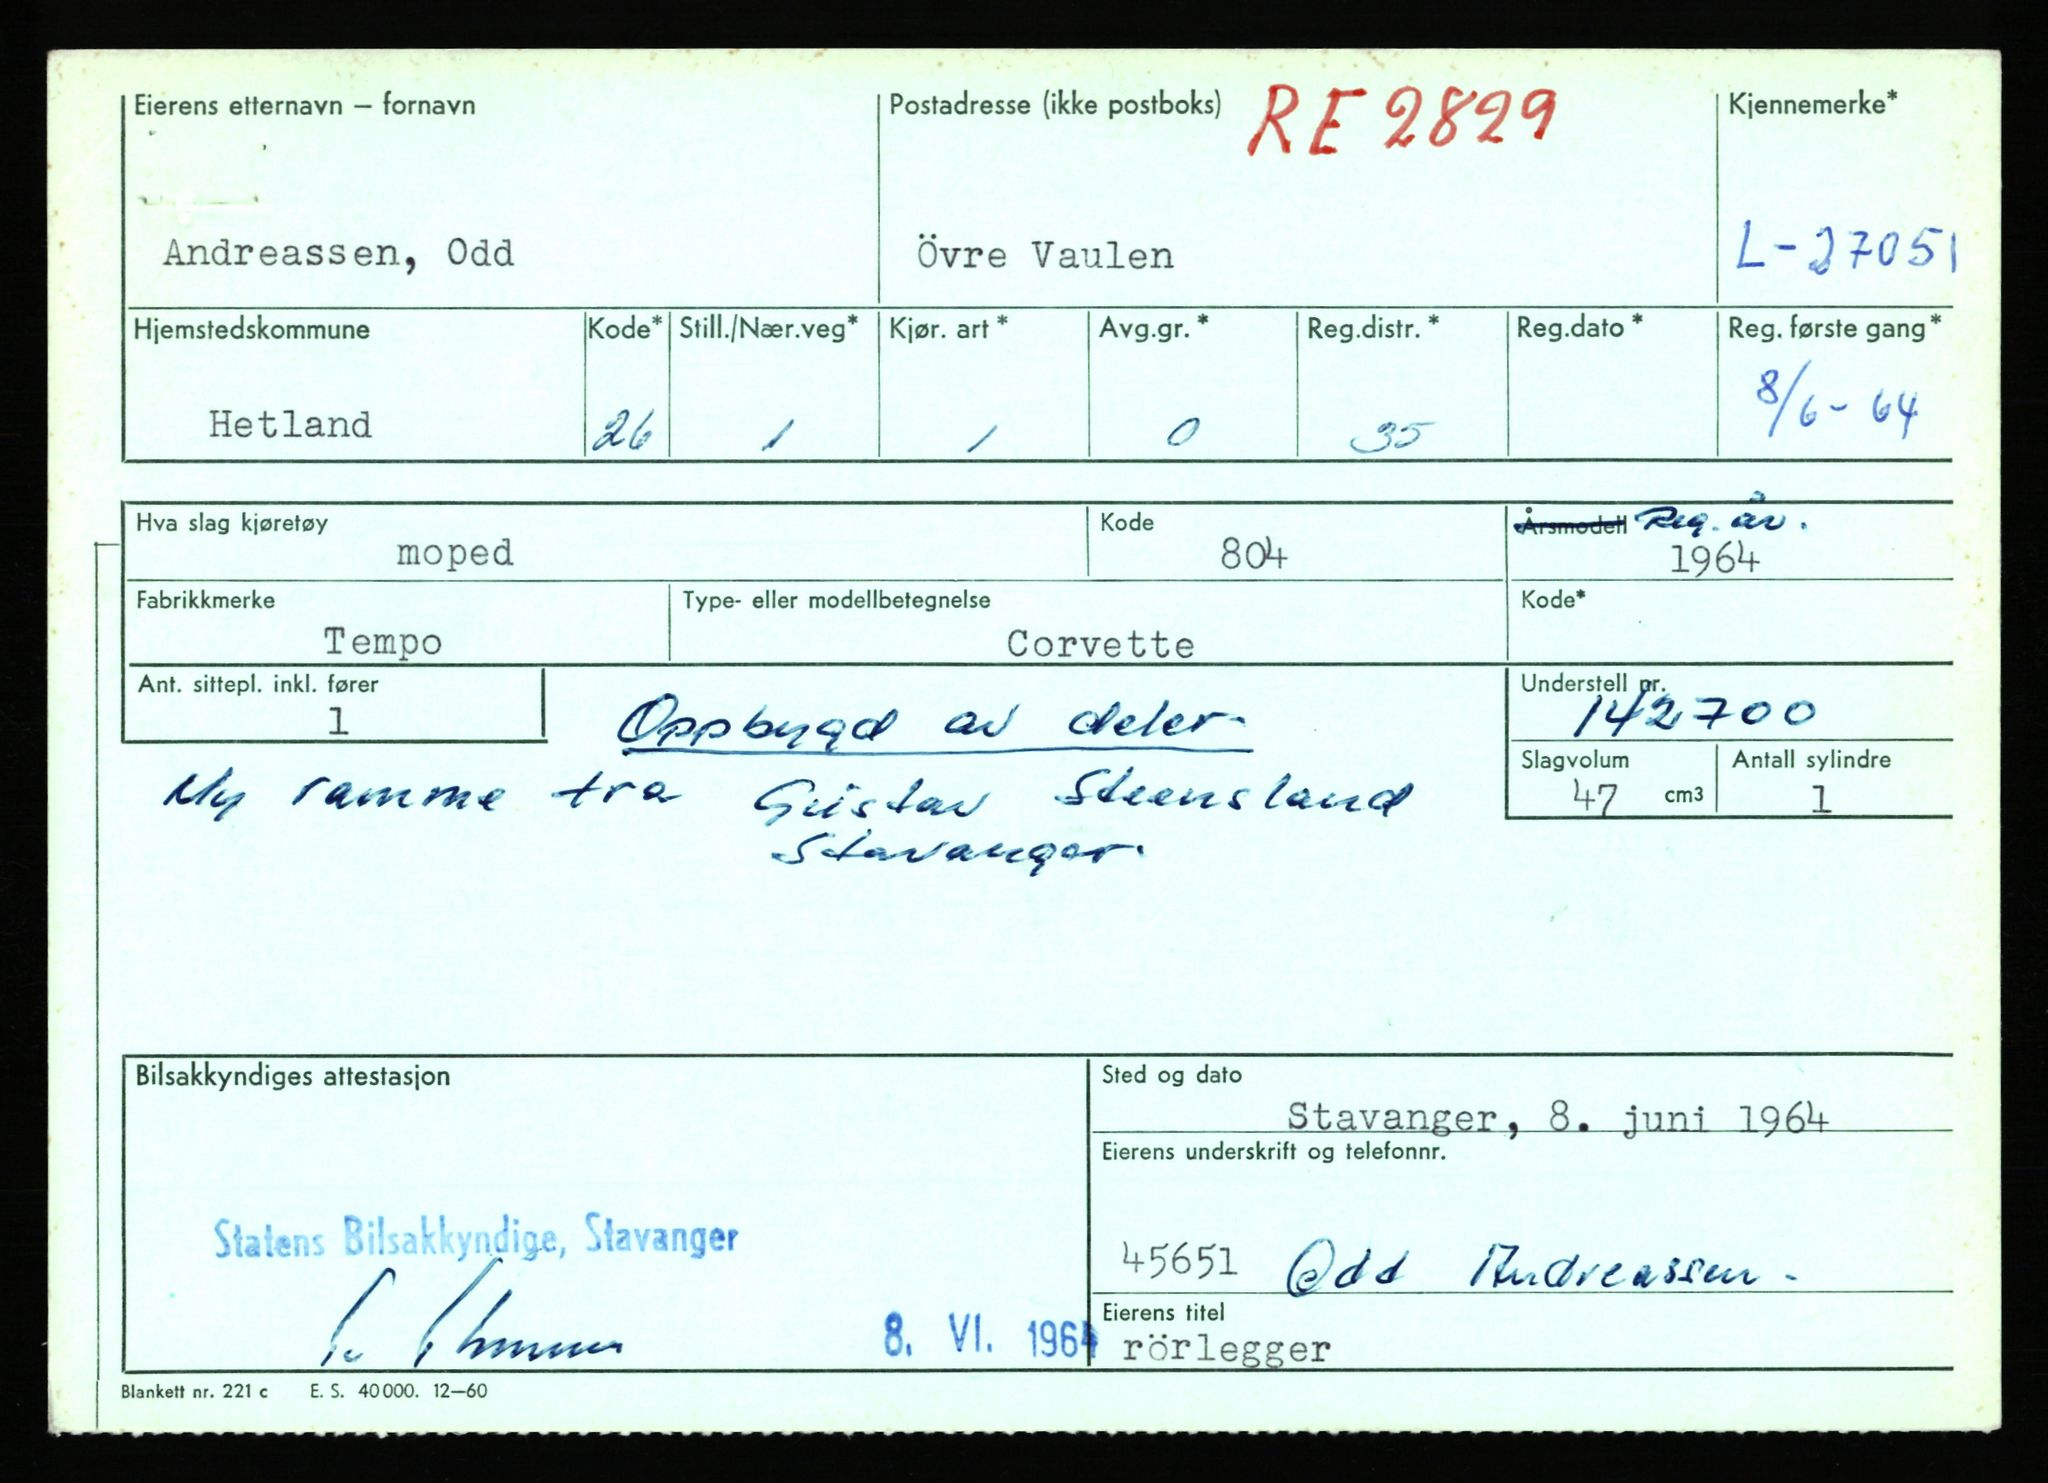 Eierens etternavn – fornavn
Postadresse (ikke postboks)
RE 2829
Kjennemerke*
Andreassen, Odd
Övre Vaulen
L-27051
Hjemstedskommune
Kode*
Still./Nær.veg*
Kjør. art *
Avg.gr. *
Reg.distr. *
Reg.dato *
Reg. første gang*
Hetland
26
1
1
0
35
8/6-64
Hva slag kjøretøy
moped
Kode
804
Årsmodell Reg. år.
1964
Fabrikkmerke
Tempo
Type- eller modellbetegnelse
Corvette
Kode*
Ant. sittepl. inkl. fører
1
Oppbygd av deler.
Understell nr.
142700
Ny ramme fra Gustav Steensland
Stavanger.
Slagvolum
47 cm3
Antall sylindre
1
Bilsakkyndiges attestasjon
Statens Bilsakkyndige, Stavanger
8. VI. 1964
Sted og dato
Stavanger, 8. juni 1964
Eierens underskrift og telefonnr.
45651 Odd Andreassen.
Eierens titel
rörlegger
Blankett nr. 221 c E. S. 40000. 12–60